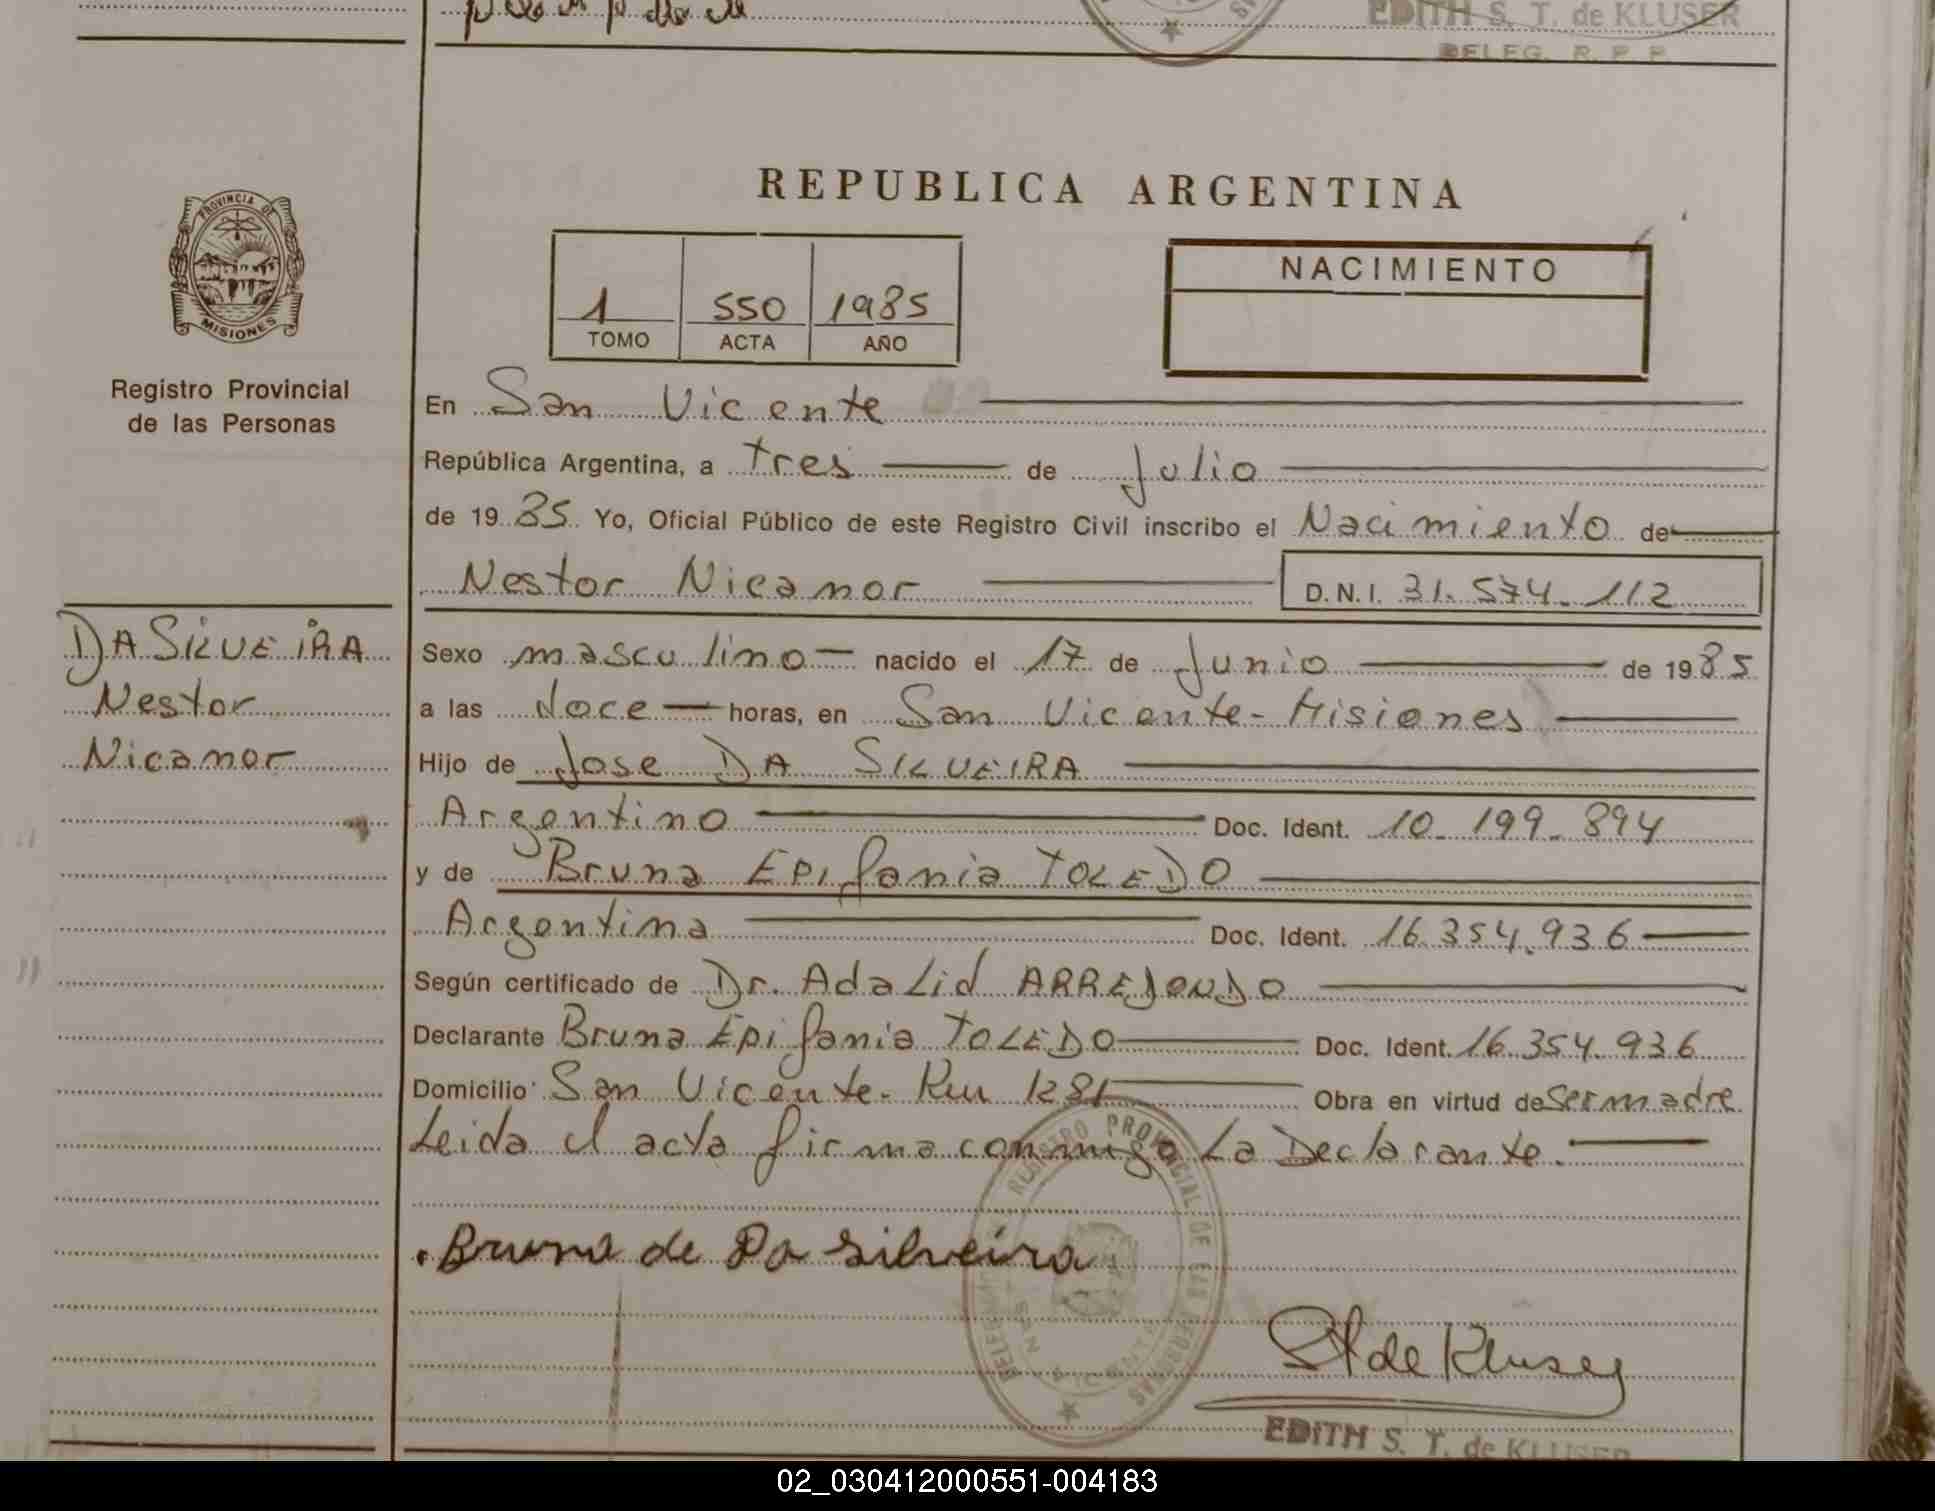 EDITH S. T. de KLUSER
DELEG. R. P. P.
PROVINCIA DE
MISIONES
Registro Provincial
de las Personas
REPUBLICA ARGENTINA
1 550 1985
TOMO ACTA AÑO
NACIMIENTO
En San Vicente
República Argentina, a tres de Julio
de 1985 Yo, Oficial Público de este Registro Civil inscribo el Nacimiento de
Nestor Nicanor D.N.I. 31.574.112
DA SILVEIRA
Nestor
Nicanor
Sexo masculino nacido el 17 de Junio de 1985
a las doce horas, en San Vicente - Misiones
Hijo de Jose DA SILVEIRA
Argentino Doc. Ident. 10.199.894
y de Bruna EPifania TOLEDO
Argentina Doc. Ident. 16.354.936
Según certificado de Dr. Adalid ARREJONDO
Declarante Bruna Epifania TOLEDO Doc. Ident. 16.354.936
Domicilio San Vicente - Km 1281 Obra en virtud de ser madre
Leida el acta firma conmigo La Declarante.
REGISTRO PROVINCIAL DE LAS PERSONAS
SAN VICENTE
Bruna de Da Silveira
de Kluser
EDITH S. T. de KLUSER
02_030412000551-004183